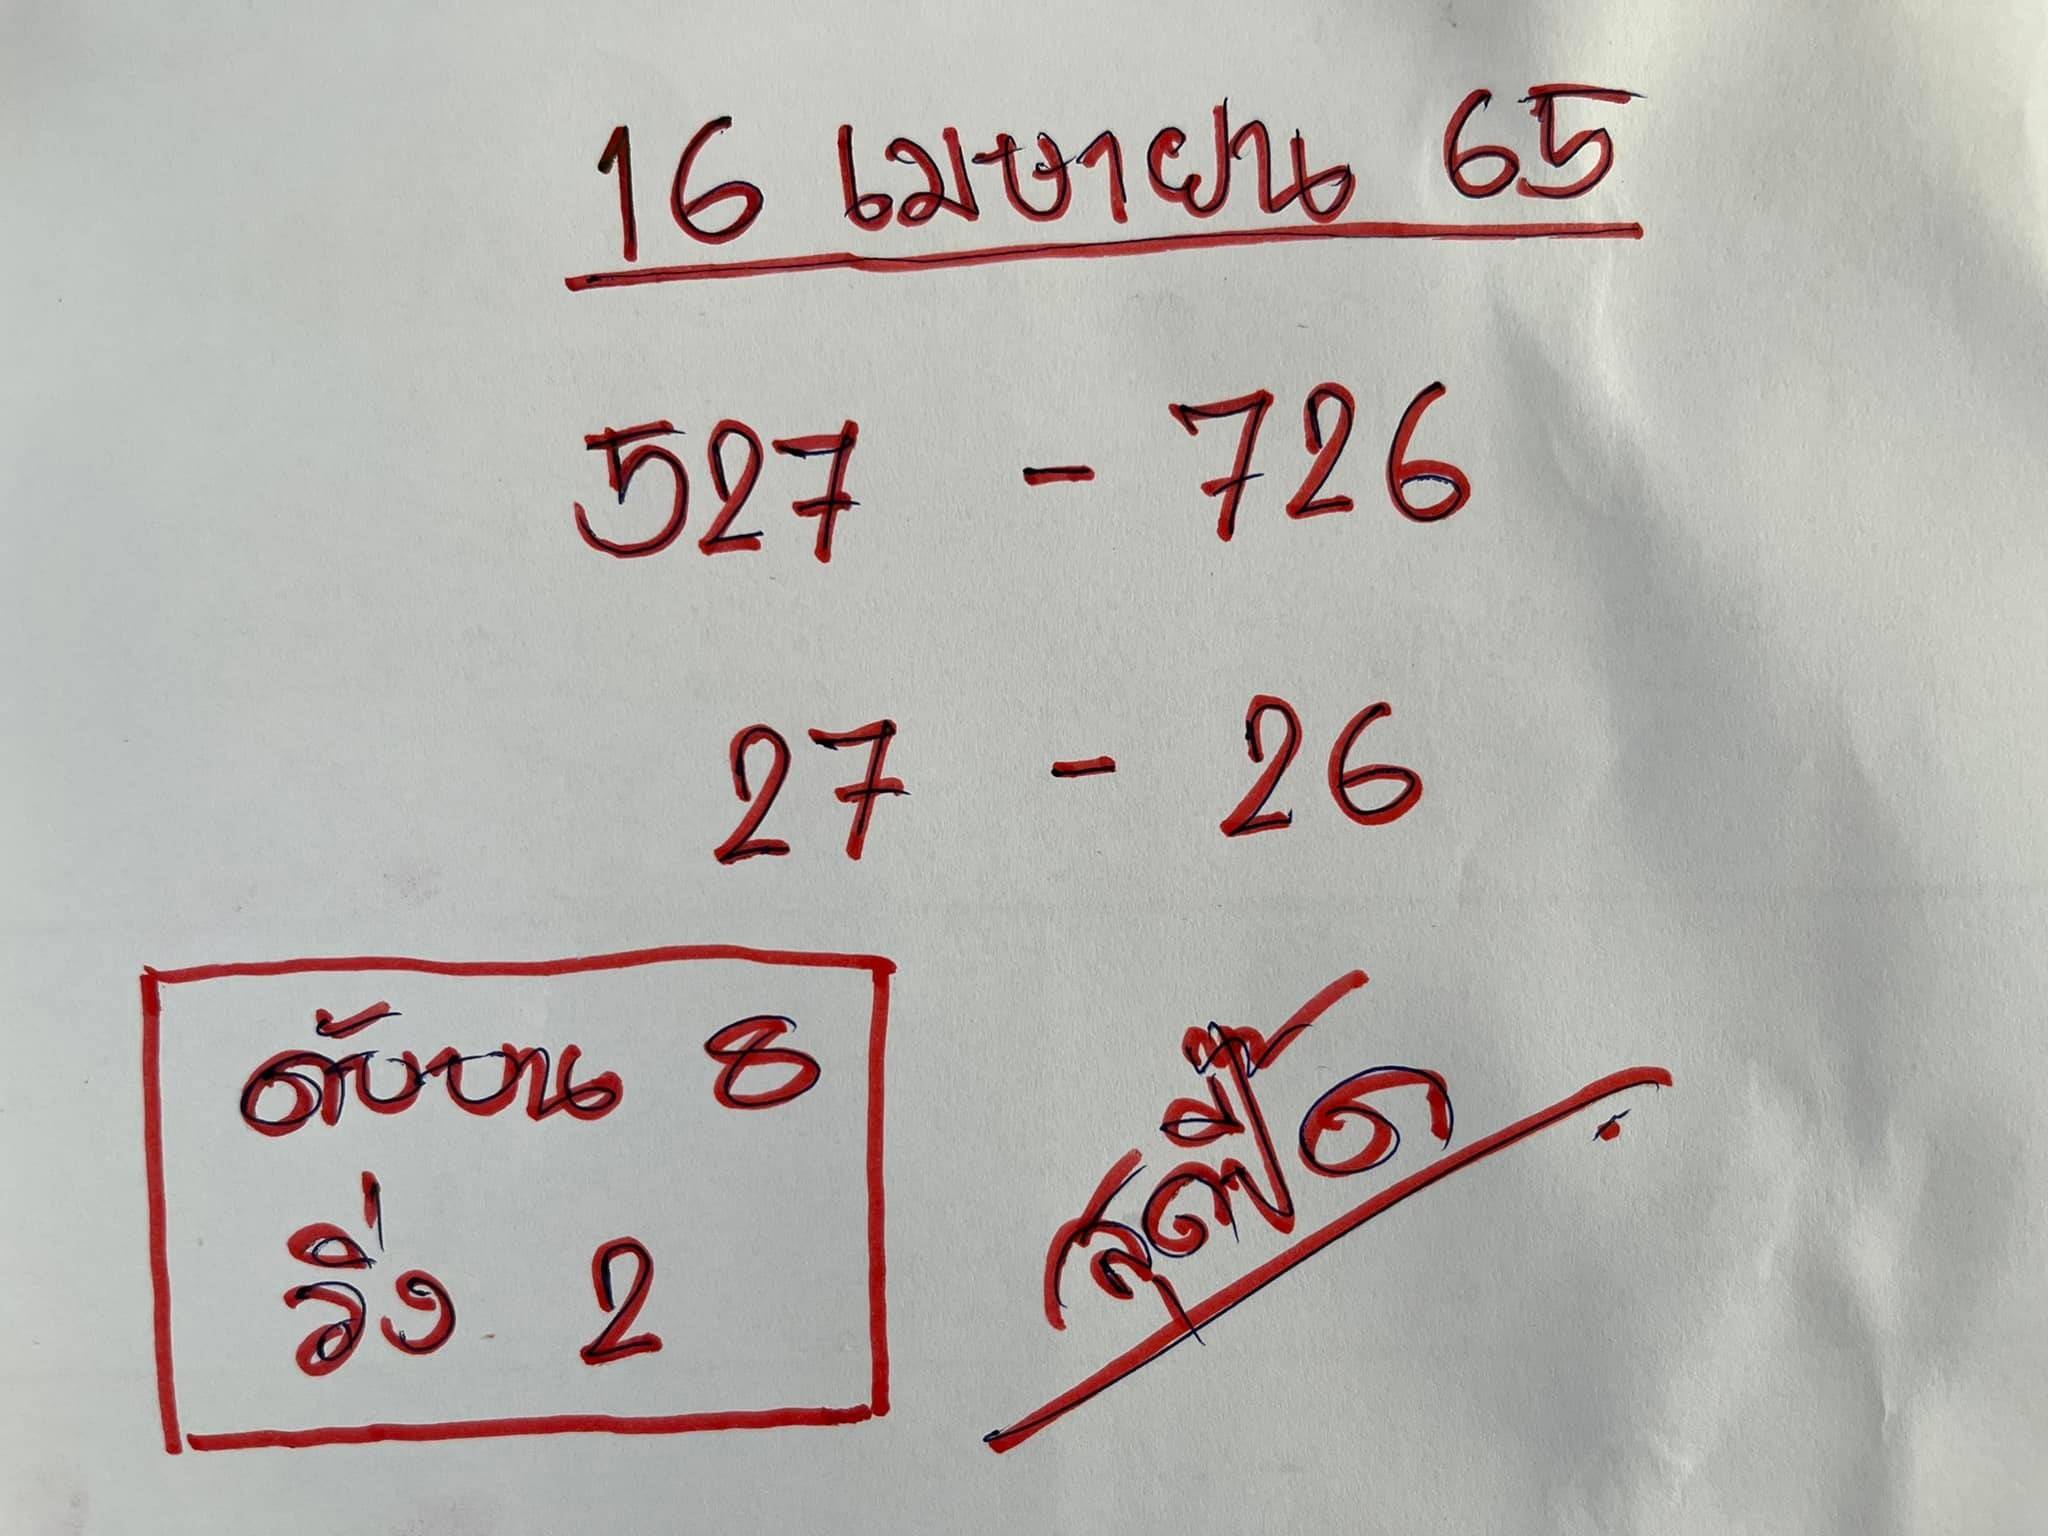 16 เมษายน 65
527 - 726
27 - 26
ดับบน 8
วิ่ง 2
สุดปี๊ด